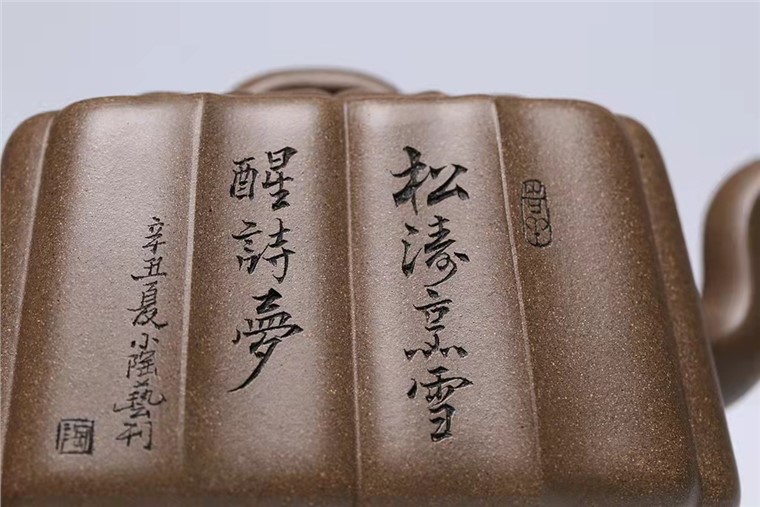 松涛烹雪
醒詩夢
辛丑夏小陶藝刊
陶